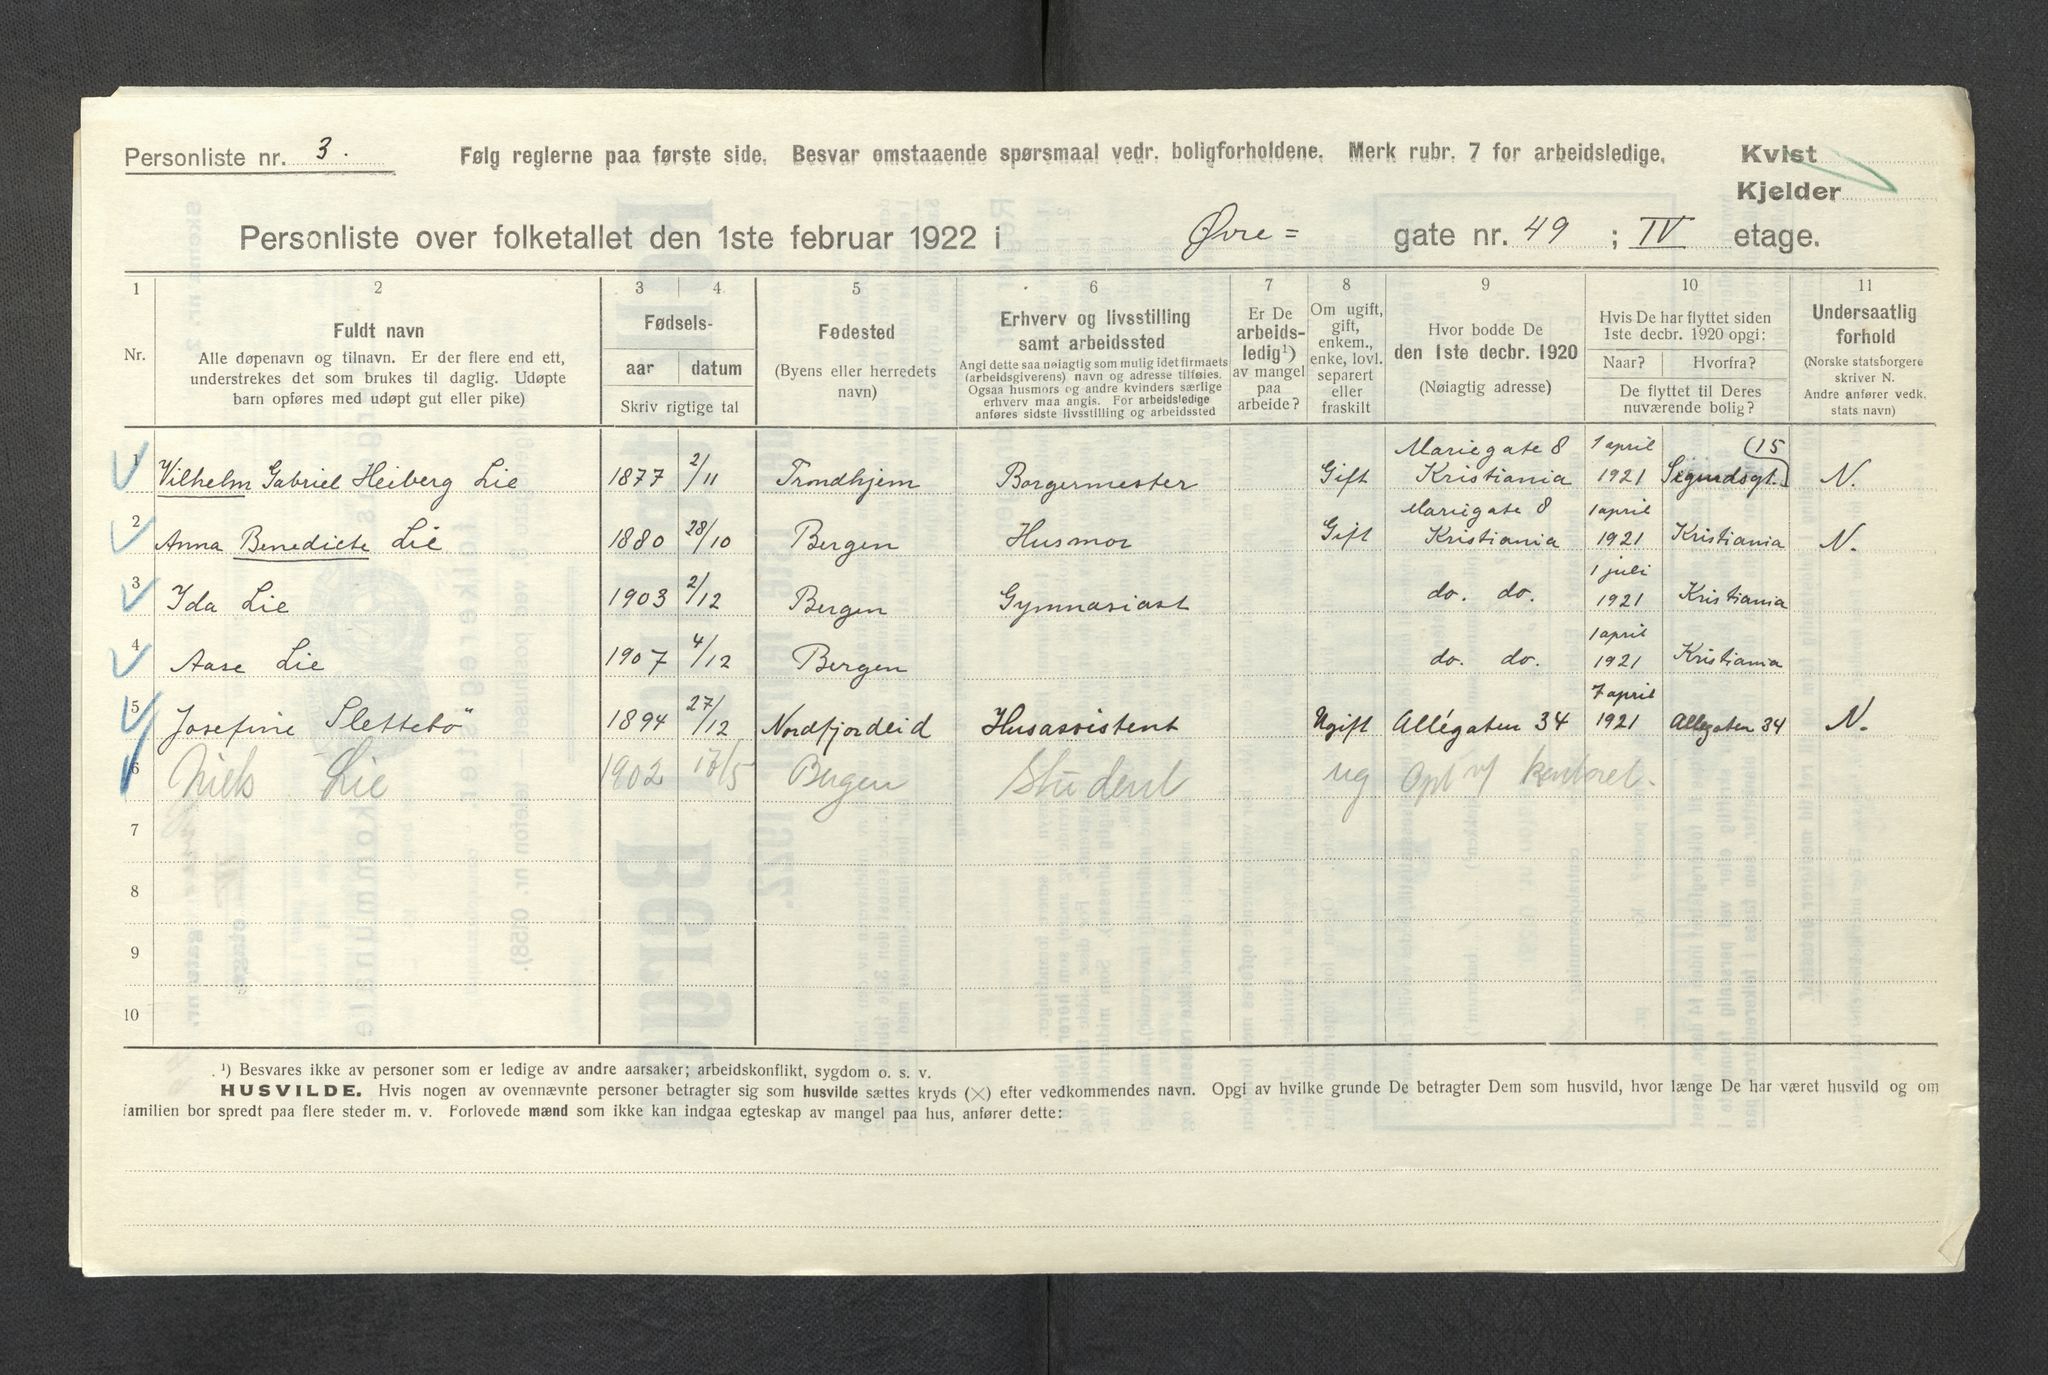 Personliste nr. 3.
Følg reglerne paa første side. Besvar omstaaende spørsmaal vedr. boligforholdene. Merk rubr. 7 for arbeidsledige.
Kvist
Kjelder
Personliste over folketallet den 1ste februar 1922 i Øvre= gate nr. 49 ; IV etage.
1 2 3 4. 5 6 7 8 9 10 11
Nr.
Fuldt navn
Alle døpenavn og tilnavn. Er der flere end ett,
understrekes det som brukes til daglig. Udøpte
barn opføres med udøpt gut eller pike)
Fødsels-
aar datum
Skriv rigtige tal
Fødested
(Byens eller herredets
navn)
Erhverv og livsstilling
samt arbeidssted
Angi dette saa nøiagtig som mulig idet firmaets
(arbeidsgiverens) navn og adresse tilføies.
Ogsaa husmors og andre kvinders særlige
erhverv maa angis. For arbeidsledige
anføres sidste livsstilling og arbeidssted
Er De
arbeids-
ledig¹)
av mangel
paa
arbeide?
Om ugift,
gift,
enkem.,
enke, lovl.
separert
eller
fraskilt
Hvor bodde De
den 1ste decbr. 1920
(Nøiagtig adresse)
Hvis De har flyttet siden
1ste decbr. 1920 opgi:
Naar? Hvorfra?
De flyttet til Deres
nuværende bolig?
Undersaatlig
forhold
(Norske statsborgere
skriver N.
Andre anfører vedk.
stats navn)
1 Vilhelm Gabriel Heiberg Lie 1877 2/11 Trondhjem Borgermester Gift Mariegate 8 Kristiania 1 april 1921 Sigurdsgt. 15 N.
2 Anna Benedicte Lie 1880 28/10 Bergen Husmor Gift Mariegate 8 Kristiania 1 april 1921 Kristiania N.
3 Ida Lie 1903 2/12 Bergen Gymnasiast do. do. 1 juli 1921 Kristiania
4 Aase Lie 1907 4/12 Bergen do. do. 1 april 1921 Kristiania
5 Josefine Slettebö 1894 27/12 Nordfjordeid Husassistent Ugift Allégaten 34 7 april 1921 Allegaten 34 N.
6 Niels Lie 1902 17/5 Bergen Student ug Opt v/ kontoret.
7
8
9
10
¹) Besvares ikke av personer som er ledige av andre aarsaker; arbeidskonflikt, sygdom o. s. v.
HUSVILDE. Hvis nogen av ovennævnte personer betragter sig som husvilde sættes kryds (×) efter vedkommendes navn. Opgi av hvilke grunde De betragter Dem som husvild, hvor længe De har været husvild og om
familien bor spredt paa flere steder m. v. Forlovede mænd som ikke kan indgaa egteskap av mangel paa hus, anfører dette: